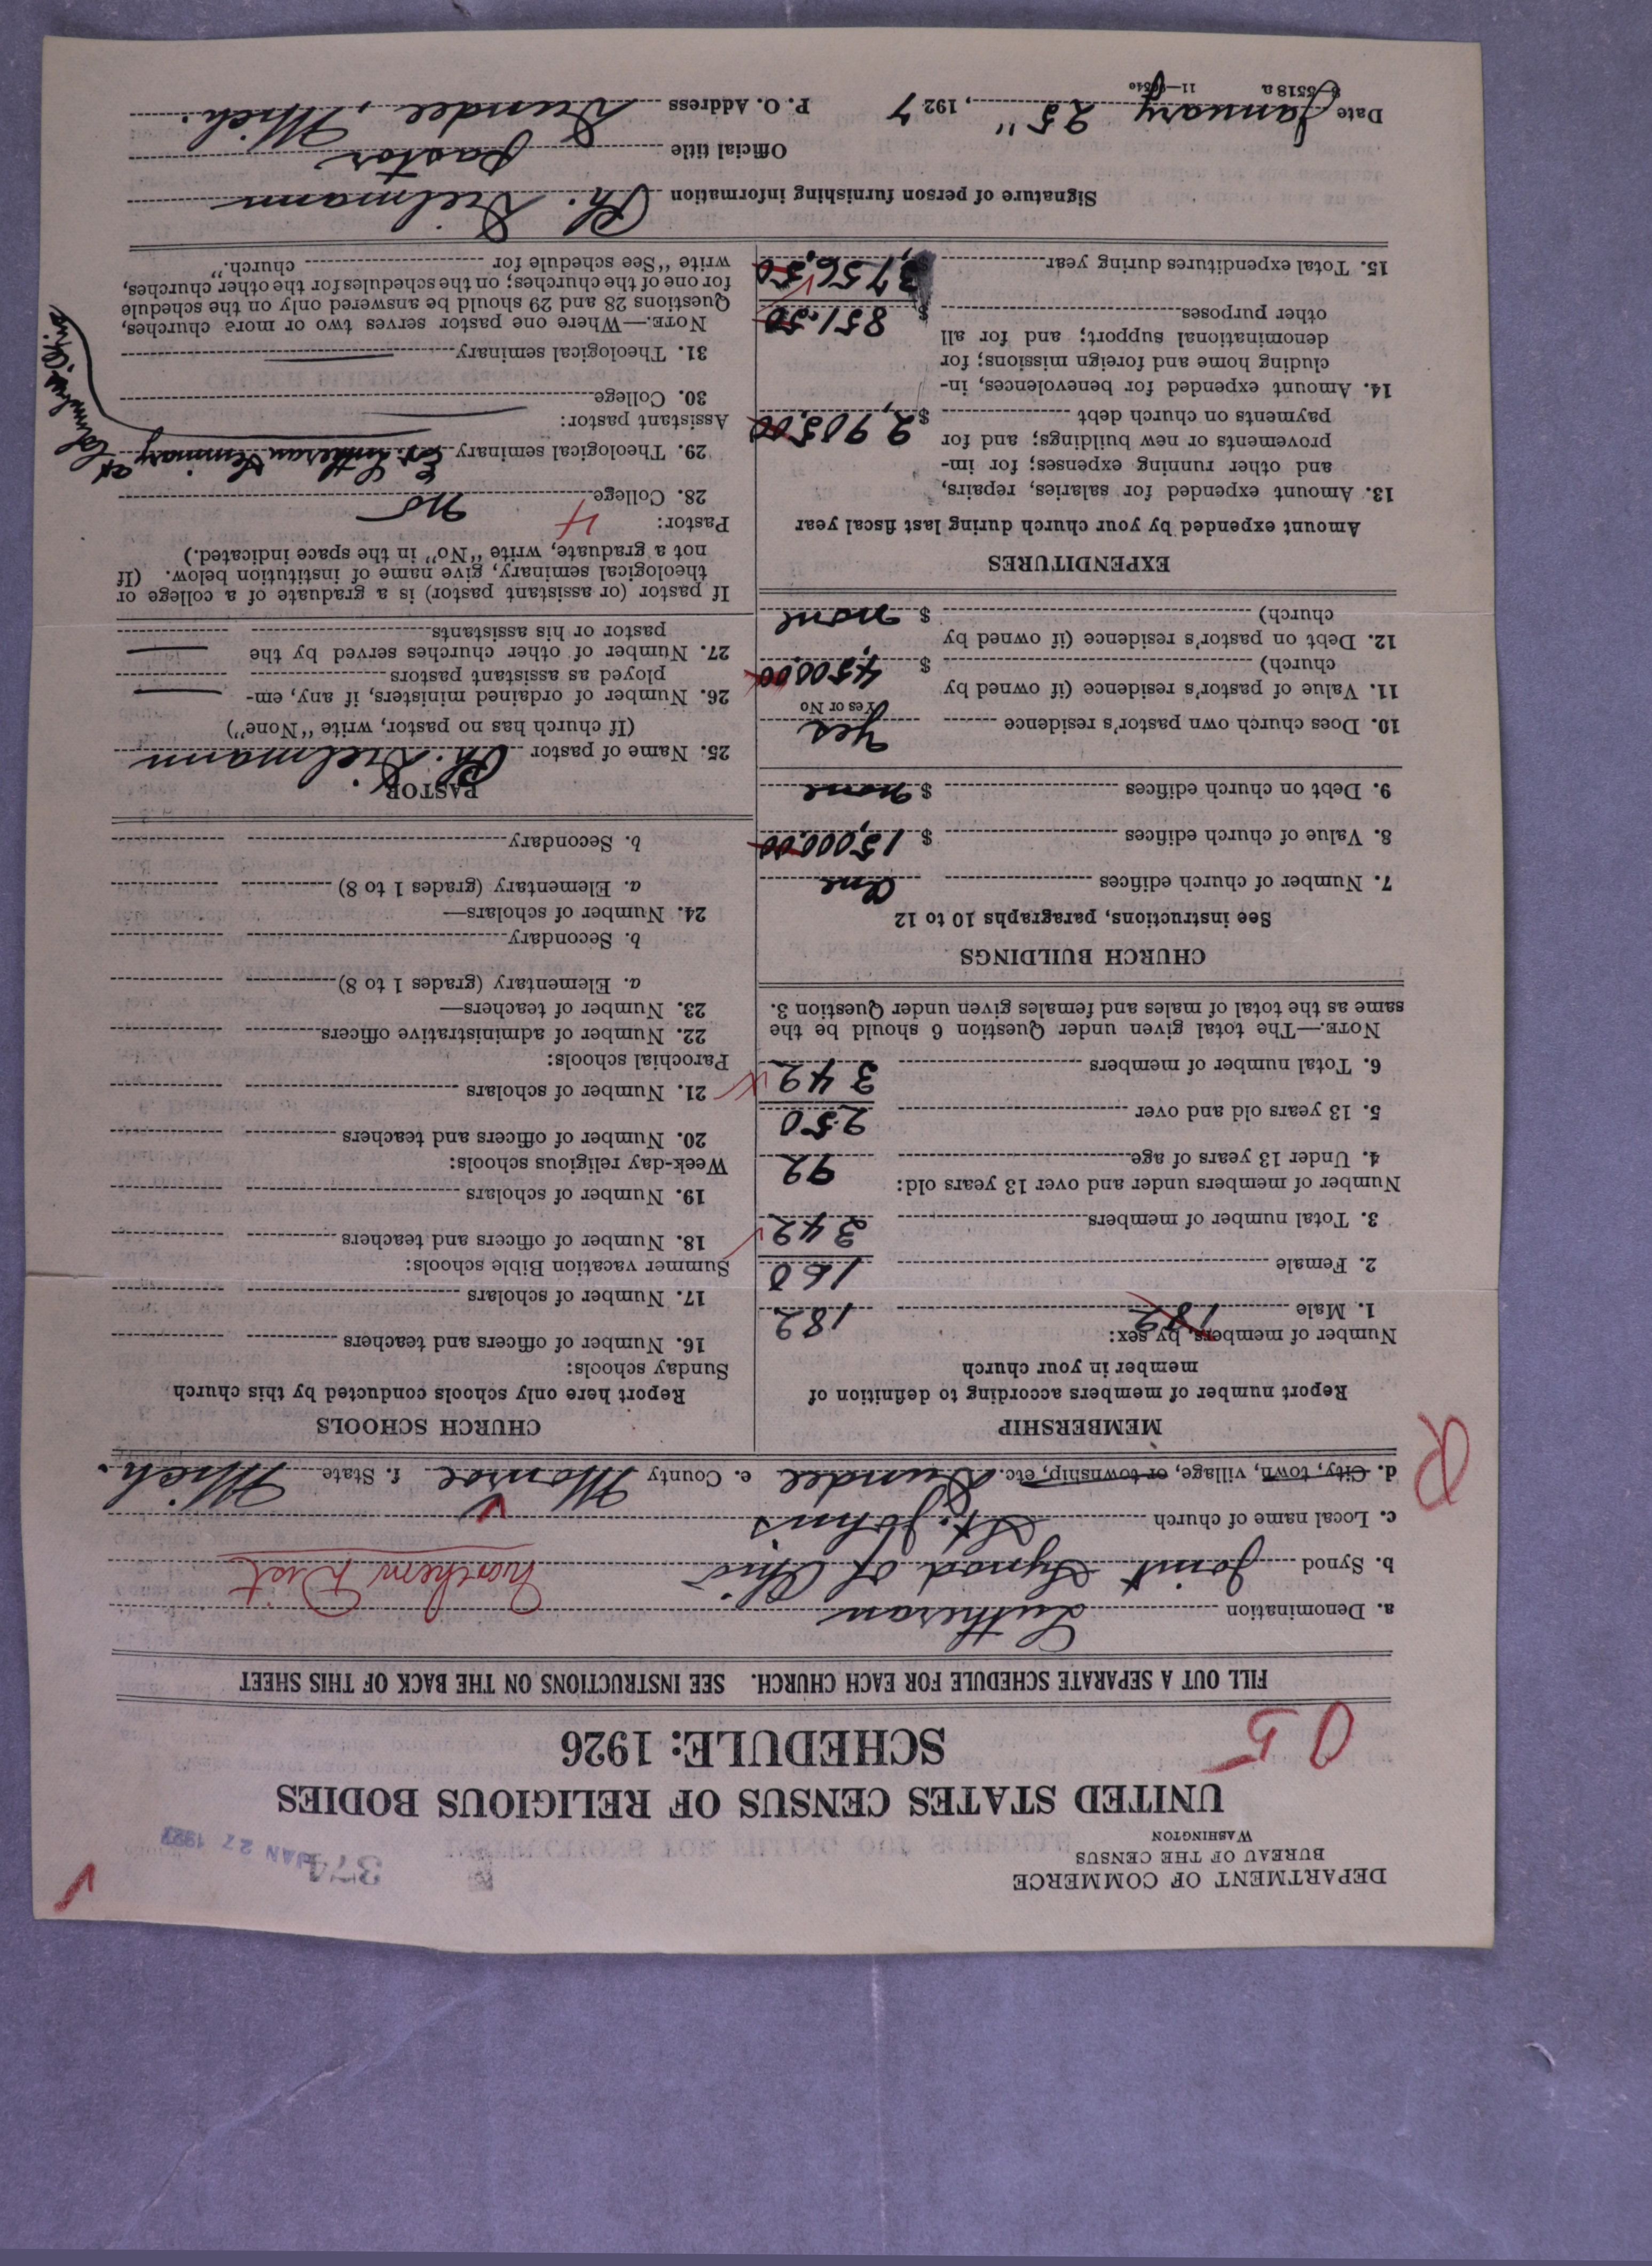 DEPARTMENT OF COMMERCE
BUREAU OF THE CENSUS
WASHINGTON
374
JAN 27 1927
UNITED STATES CENSUS OF RELIGIOUS BODIES
SCHEDULE: 1926
95
FILL OUT A SEPARATE SCHEDULE FOR EACH CHURCH. SEE INSTRUCTIONS ON THE BACK OF THIS SHEET
a. Denomination Lutheran
b. Synod Joint Synod of Ohio Northern Dist
c. Local name of church St. Johns
d. City, town, village, or township, etc. Dundee e. County Monroe f. State Mich.
R
MEMBERSHIP
Report number of members according to definition of
member in your church
Number of members, by sex:
1. Male 182 182
2. Female 160
3. Total number of members 342
Number of members under and over 13 years old:
4. Under 13 years of age 92
5. 13 years old and over 250
6. Total number of members 342
NOTE.—The total given under Question 6 should be the
same as the total of males and females given under Question 3.
CHURCH BUILDINGS
See instructions, paragraphs 10 to 12
7. Number of church edifices One
8. Value of church edifices $ 15,000.00
9. Debt on church edifices $ none
10. Does church own pastor's residence Yes
Yes or No
11. Value of pastor's residence (if owned by
church) $ 4,500.00
12. Debt on pastor's residence (if owned by
church) $ none
EXPENDITURES
Amount expended by your church during last fiscal year
13. Amount expended for salaries, repairs,
and other running expenses; for im-
provements or new buildings; and for
payments on church debt $ 2,905.00
14. Amount expended for benevolences, in-
cluding home and foreign missions; for
denominational support; and for all
other purposes $ 851.50
15. Total expenditures during year 3,756.50
CHURCH SCHOOLS
Report here only schools conducted by this church
Sunday schools:
16. Number of officers and teachers
17. Number of scholars
Summer vacation Bible schools:
18. Number of officers and teachers
19. Number of scholars
Week-day religious schools:
20. Number of officers and teachers
21. Number of scholars
Parochial schools:
22. Number of administrative officers
23. Number of teachers—
a. Elementary (grades 1 to 8)
b. Secondary
24. Number of scholars—
a. Elementary (grades 1 to 8)
b. Secondary
PASTOR
25. Name of pastor Ph. Dielmann
(If church has no pastor, write "None")
26. Number of ordained ministers, if any, em-
ployed as assistant pastors
27. Number of other churches served by the
pastor or his assistants
If pastor (or assistant pastor) is a graduate of a college or
theological seminary, give name of institution below. (If
not a graduate, write "No" in the space indicated.)
Pastor: 4
28. College no
29. Theological seminary Ev. Lutheran Seminary at Columbus, Ohio
Assistant pastor:
30. College
31. Theological seminary
NOTE.—Where one pastor serves two or more churches,
Questions 28 and 29 should be answered only on the schedule
for one of the churches; on the schedules for the other churches,
write "See schedule for church."
Signature of person furnishing information Ph. Dielmann
Official title Pastor
Date January 25", 1927 P. O. Address Dundee, Mich.
8—5518a